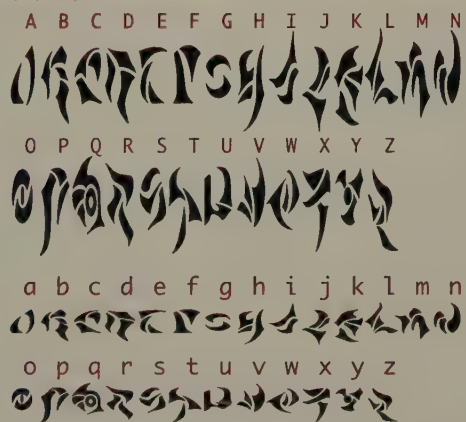 A B C D E F G H I J K L M N
O P Q R S T U V W X Y Z
a b c d e f g h i j k l m n
o p q r s t u v w x y z